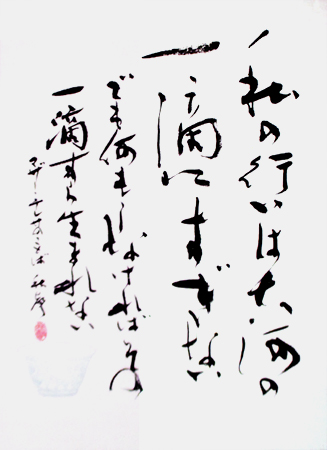 私の行いは大河の
一滴にすぎない
でも何もしなければその
一滴すら生まれない
マザー・テレサのことば 秋